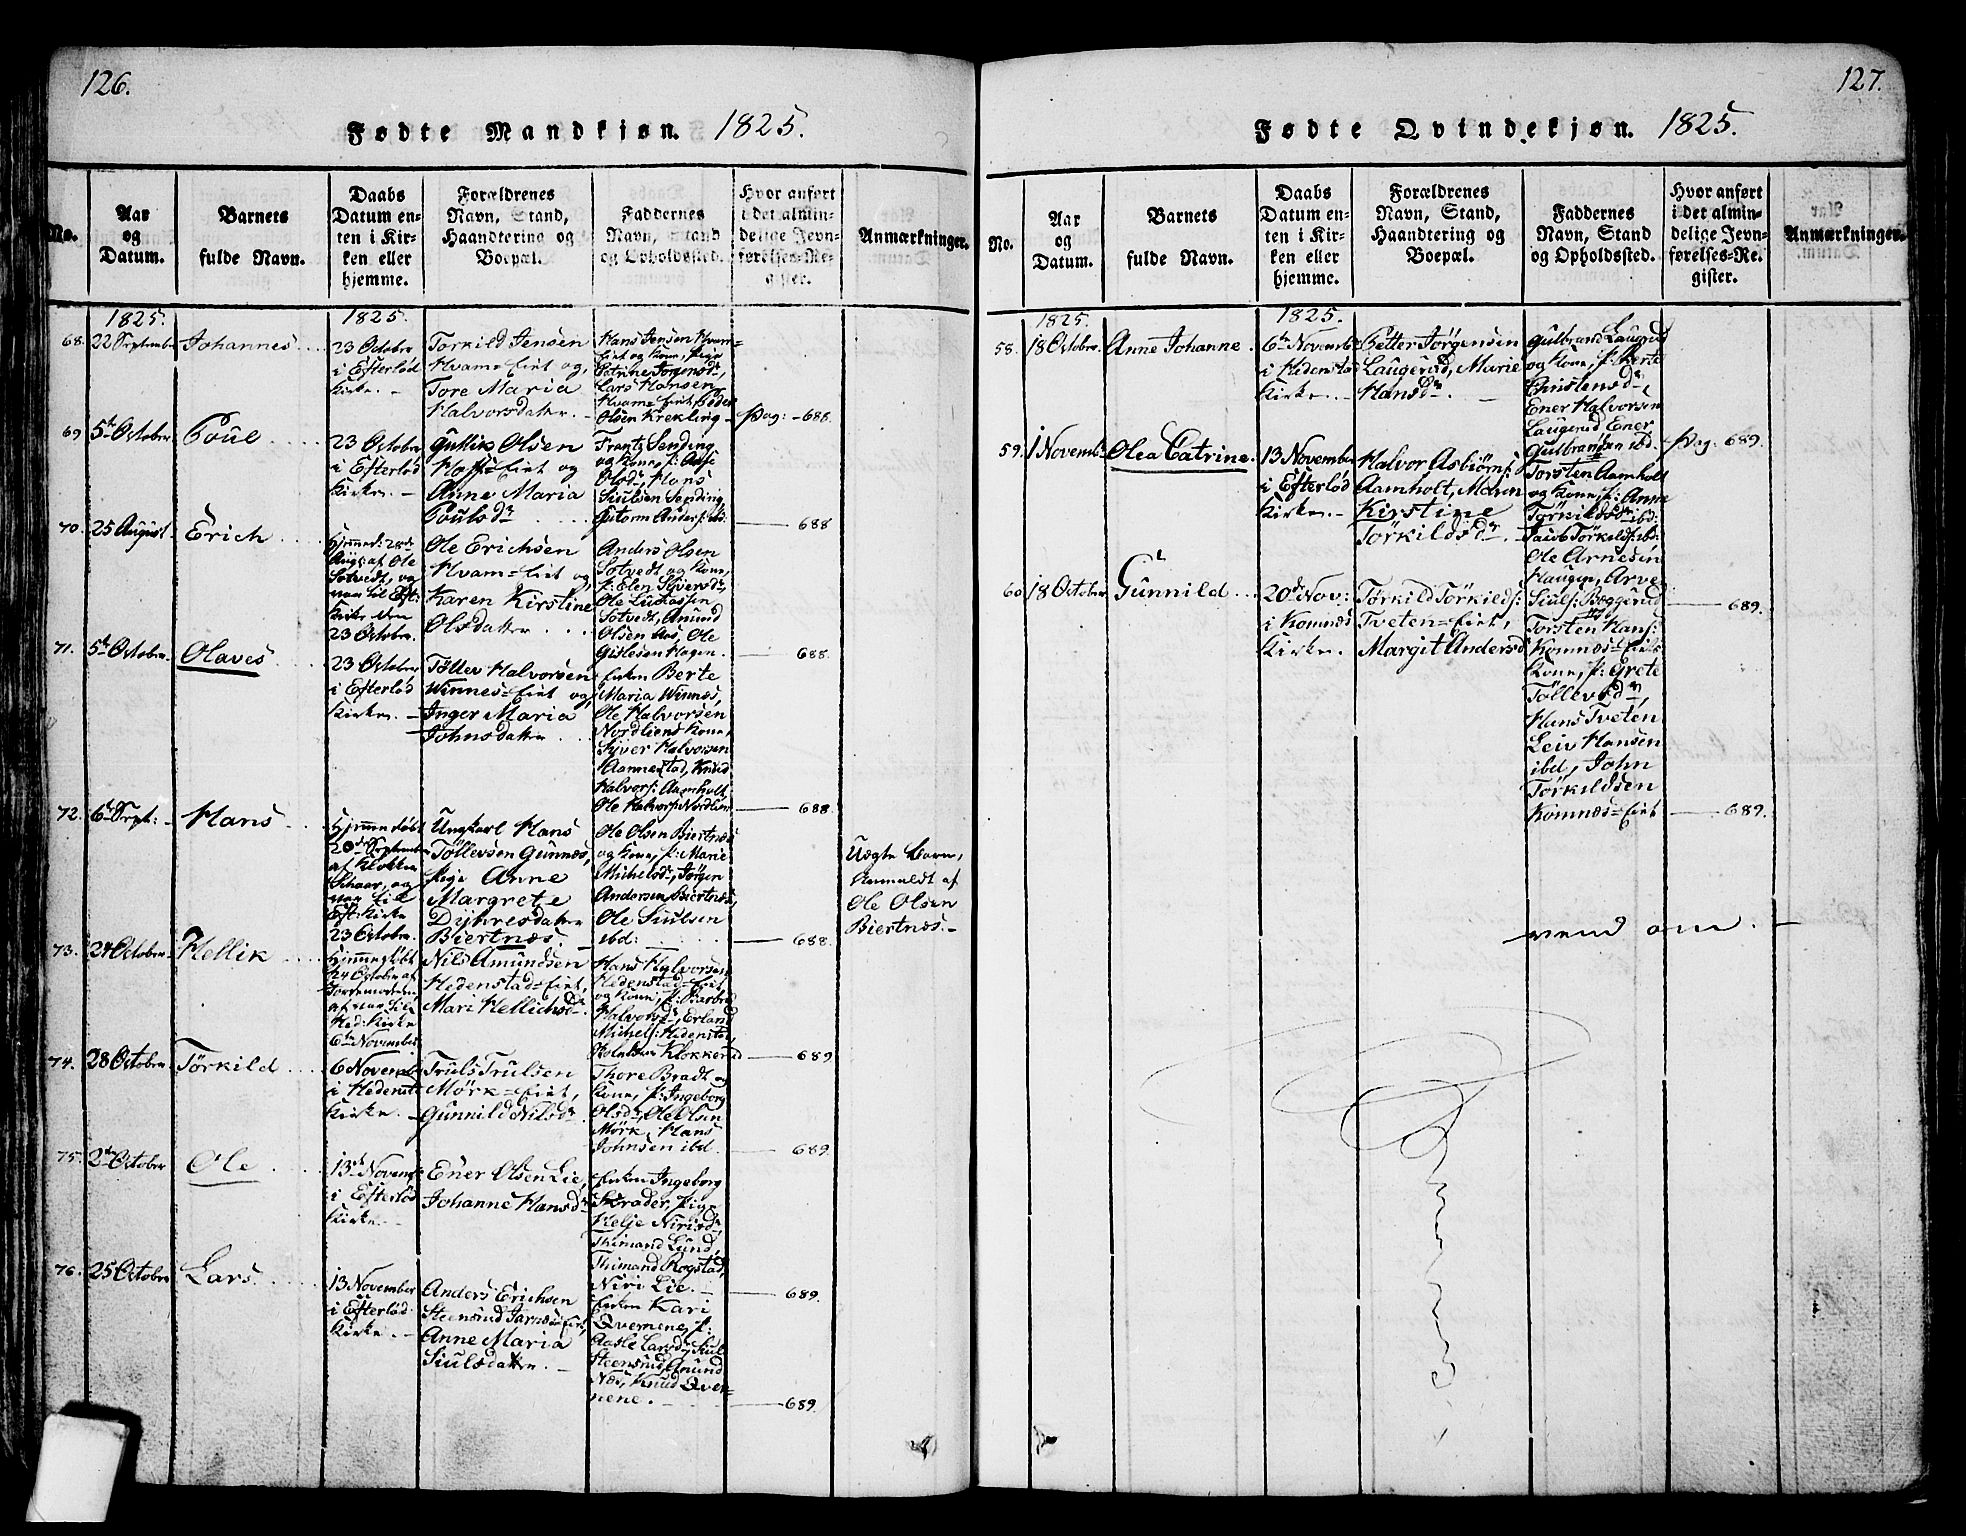 126.
Fødte Mandkjøn. 1825.
No.
Aar
og
Datum.
Barnets
fulde Navn.
Daabs
Datum en-
ten i Kir-
ken eller
hjemme.
Forældrenes
Navn, Stand,
Haandtering og
Boepæl.
Faddernes
Navn, Stand
og Opholdssted.
Hvor anført
i det almin-
delige Jevn-
førelses-Re-
gister.
Anmærkninger.
1825.
1825.
68.
22 September
Johannes
23 Octobr
i Efterløds
Kirke. -
Torkild Jensen
Hvam=Eiet og
Tore Maria
Halvorsdatter. -
Hans Jensen Hvam=
Eiet og Kone, Pige
Catrine Jørgensdr,
Lars Hansen
Hvam=Eiet, Peder
Olsen Krekling -
Pag: - 688.
69
5te Octobr
Poul
23 Octobr
i Efterlød
Kirke. -
Gullik Olsen
Hoff=Eiet og
Anne Maria
Poulsdr
Frantz Sending
og Kone, f: Anne
Olsdr, Hans
Siulsen Sending
Gutorm Anders: ibd:
688
70.
25 August.
Erich
Hjemmed: 28de
Augs: af Ole
Sotvedt, og
var til Eft:
Kirke den
23 Octobr.
Ole Erichsen
Hvam=Eiet og
Karen Kirstine
Olsdatter
Anders Olsen
Sotvedt og Kone,
f: Elen Syversdr,
Ole Lucassen
Sotvedt, Amund
Olsen Aas, Ole
Gislesen Hagen.
688.
71.
5te Octobr.
Olaves
23 Octobr
i Efterlød
Kirke. -
Tøllev Halvorsen
Winnes=Eiet og
Inger Maria
Johnsdatter
Enken Berte
Maria Winnes,
Ole Halvorsen
Nordliens Kone,
Syver Halvorsen
Aannestad, Knud
Halvors: Aamholt
Ole Halvors: Nordlien
688.
72.
6te Sept:
Hans
Hjemmedøbt
20de September
af Klokker
Schaar, og
var til
Eft: Kirke
23 Octobr.
Ungkarl Hans
Tøllevsen Gunnes,
Pige Anne
Margrete
Dyhresdatter
Biertnæs.
Ole Olsen Biertnæs
og Kone, f: Marie
Michelsdr, Jørgen
Andersen Biertnæs,
Ole Siulsen
ibd:
688.
Uægte Barn,
Anmeldt af
Ole Olsen
Biertnæs. -
73.
24 Octobr
Hellik
Hjemmedøbt
24 Octobr af
Jordemoderen
Hed: Kirke
6te November
Nils Amundsen
Hedenstad=Eiet,
Mari Hellichsdr
Hans Halvorsen
Hedenstad=Eiet
og Kone, f: Barbro
Halvorsdr, Erland
Michels: Hedenstad,
Klokkerud
689
74.
28 Octobr
Tørkild
6 Novemb
i Hedenst
Kirke. -
Truls Trulsen
Mørk=Eiet,
Gunnild Nilsdr
Thore Bradt og
Kone, f: Ingeborg
Olsdr, Ole Olsen
Mørk, Hans
Johnsen ibd.
689.
75.
2de Octobr
Ole
13de Novemb:
i Efterlød
Kirke. -
Ener Olsen Lie,
Johanne Hansdr
Enken Ingeborg
Strader, Pige
Helje Nirisdr,
Thimand Lund,
Thimand Rogstad,
Niri Lie. -
689.
76.
25 Octobr
Lars
13 November
i Efterlød
Kirke. -
Anders Erichsen
Steensrud Jarnæs Eiet,
Anne Maria
Siulsdatter. -
Enken Kari
Qvernene, f:
Aasle Larsdr, Siul
Steensrud, Amund
Næs, Knud Qver=
nene. -
689.
127.
Fødte Qvindekjøn. 1825.
No.
Aar
og
Datum.
Barnets
fulde Navn.
Daabs
Datum en-
ten i Kir-
ken eller
hjemme.
Forældrenes
Navn, Stand,
Haandtering og
Boepæl.
Faddernes
Navn, Stand
og Opholdssted.
Hvor anført
i det almin-
delige Jevn-
førelses-Re-
gister.
Anmærkninger.
1825.
1825.
58.
18 Octobr.
Anne Johanne.
6te Novembr
i Hedenstad
Kirke. -
Petter Jørgensen
Laugerud, Marie
Hansdr. -
Gulbrand Laugerud
og Kone, f: Berte
Christensdr,
Ener Halvorsen
Laugerud, Ener
Gulbrandsen ibd.
Pag: 689.
59.
1 Novemb:
Olea Catrine.
13 November
i Efterlød
Kirke. -
Halvor Asbiørns:
Aamholt, Maren
Kirstine
Tørkildsdr. -
Torsten Aamholt
og Kone, f: Anne
Tørkildsdr ibd:
Jacob Tørkilds: ibd:
Ole Arnesen
Haugen, Arve
Siuls: Bøggerud
689.
60
18 Octobr
Gunnild
20de Nov:
i Komnes
Kirke. -
Tørkild Tørkilds:
Tveten=Eiet,
Margit Andersd
Torsten Hans:
Komnæs=Eiets
Kone, f: Grete
Tøllevsdr,
Hans Tveten
Leiv Hansen
ibd, John
Tørkildsen
Komnæs=Eiet
689.
vend om. -